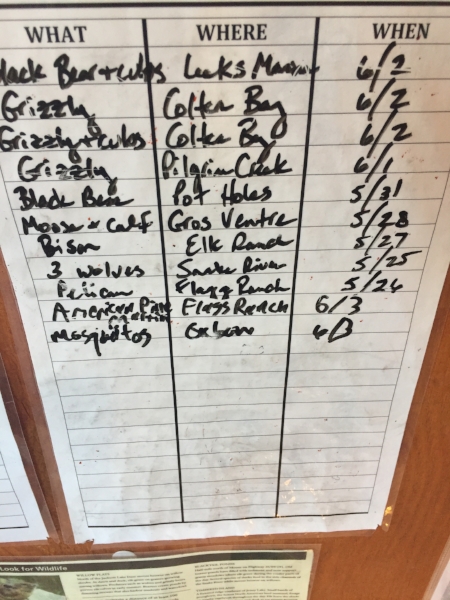 WHAT WHERE WHEN
lack Bear + cubs Leeks Marina 6/2
Grizzly Colter Bay 6/2
Grizzly + cubs Colter Bay 6/2
Grizzly Pilgrim Creek 6/1
Black Bear Pot Holes 5/31
Moose + Calf Gros Ventre 5/28
Bison Elk Ranch 5/27
3 wolves Snake River 5/25
Pelican Flagg Ranch 5/24
American Pine Flagg Ranch 6/3
Marten
Mosquitos 6/3
Look for Wildlife